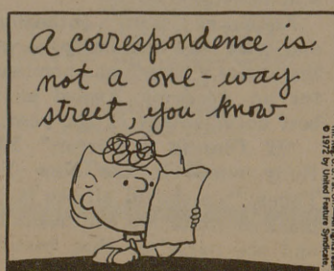 A correspondence is
not a one-way
street, you know.
© 1972 by United Feature Syndicate,